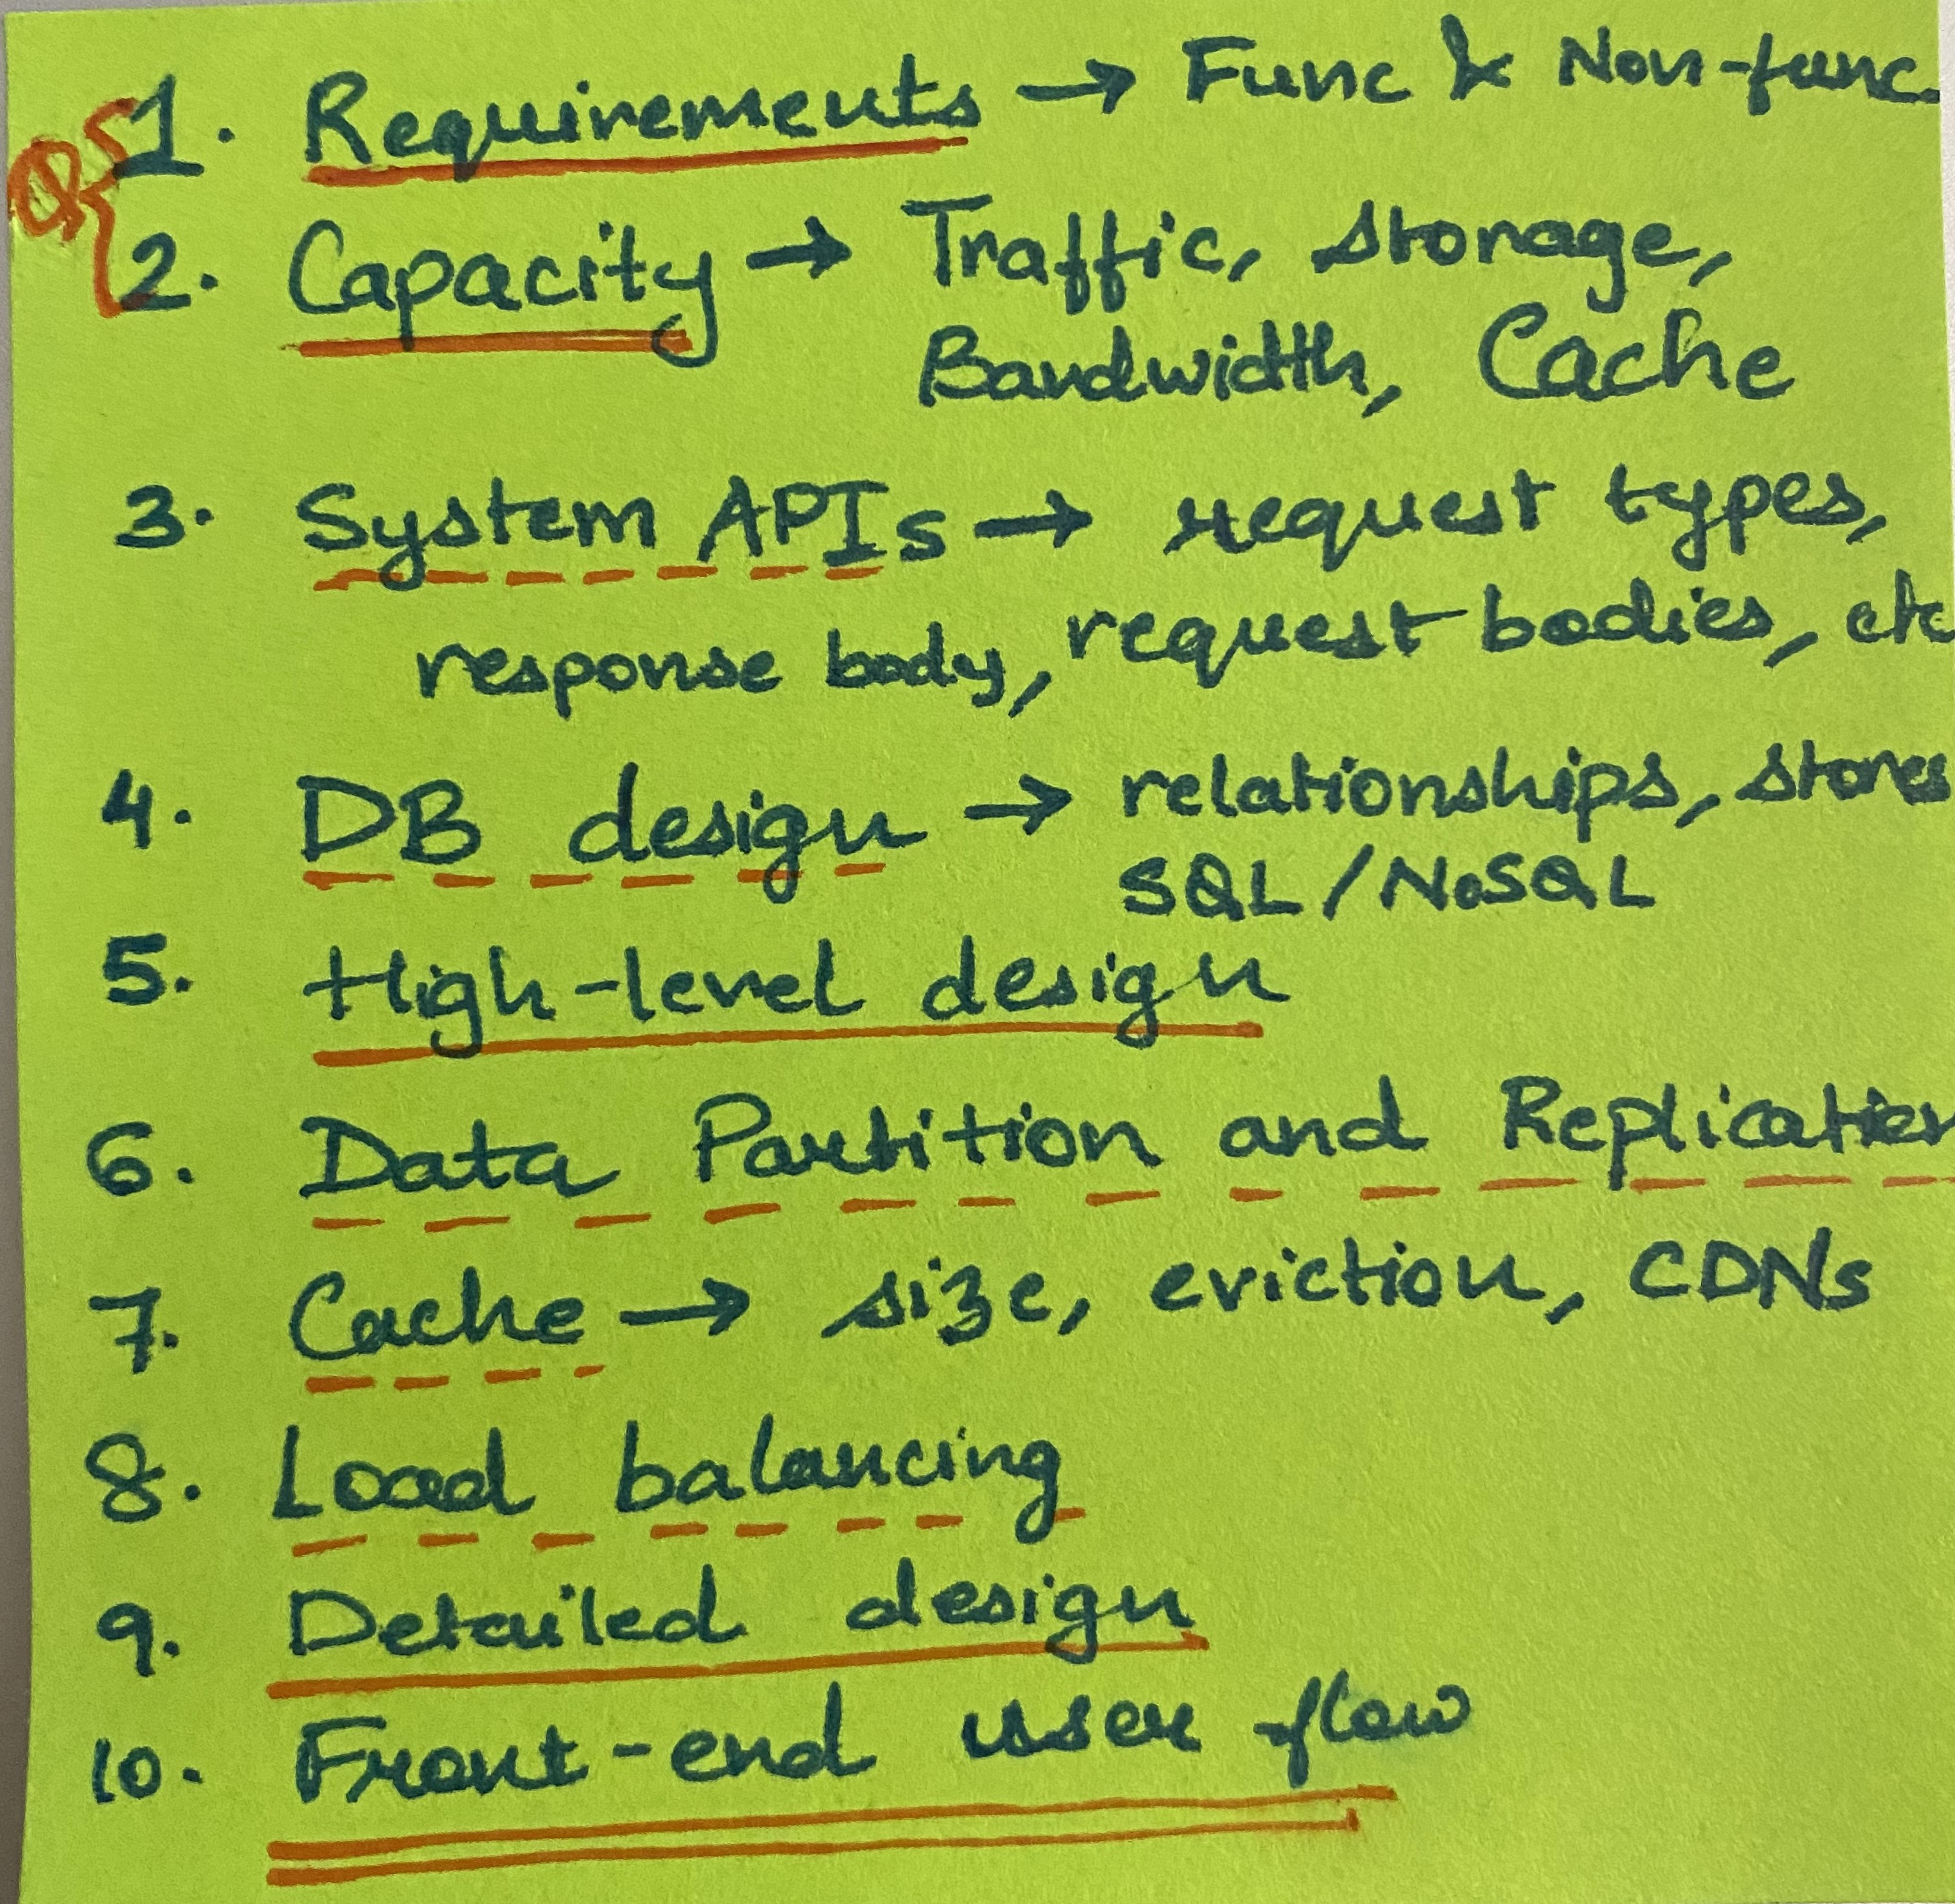 Qs
1. Requirements → Func & Non-func.
2. Capacity → Traffic, storage,
Bandwidth, Cache
3. System APIs → request types,
response body, request bodies, etc
4. DB design → relationships, stores
SQL/NoSQL
5. High-level design
6. Data Partition and Replication
7. Cache → size, eviction, CDNs
8. Load balancing
9. Detailed design
10. Front-end user flow